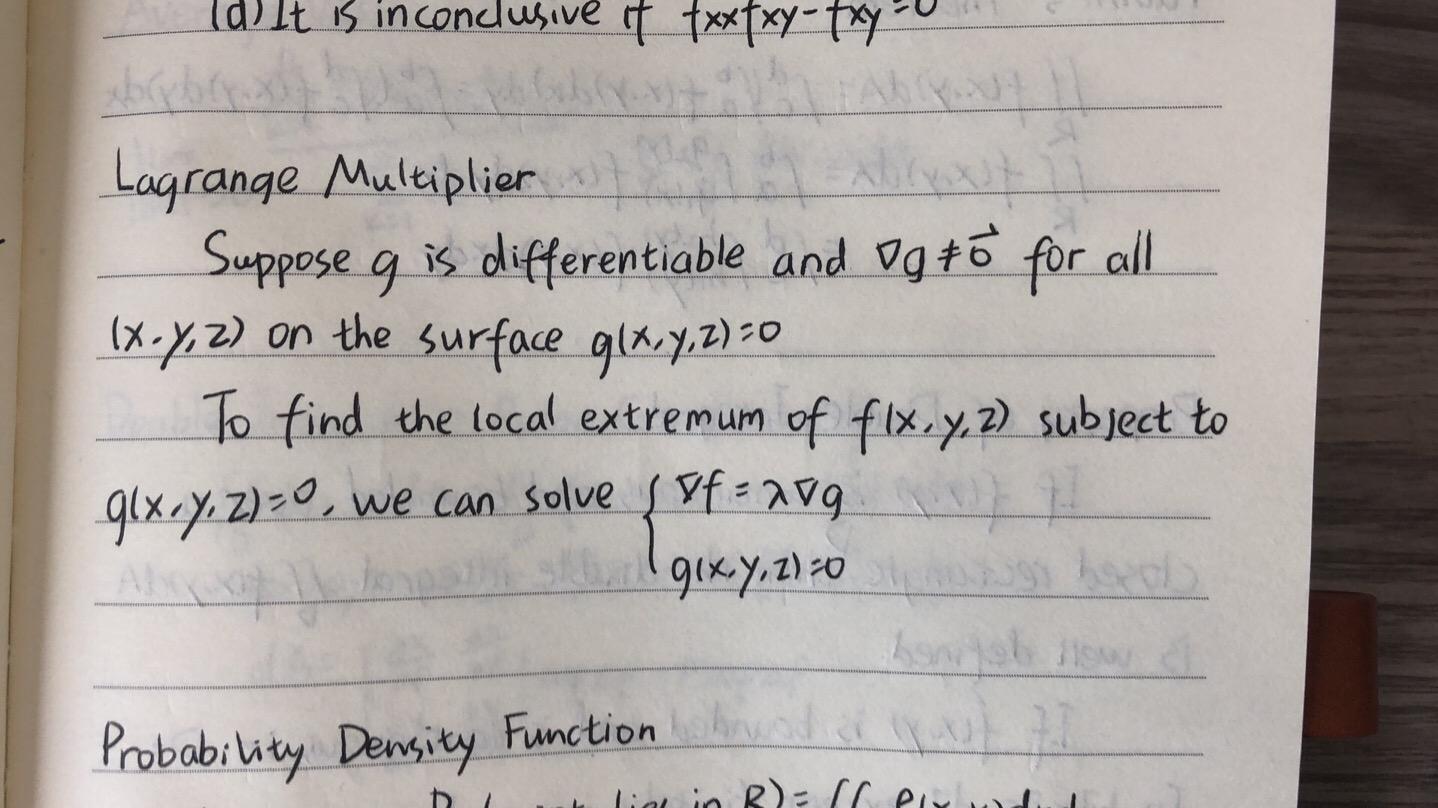 (d) It is inconclusive if fxxfxy-fxy=0
Lagrange Multiplier
Suppose g is differentiable and ∇g≠0⃗ for all
(x,y,z) on the surface g(x,y,z)=0
To find the local extremum of f(x,y,z) subject to
g(x,y,z)=0, we can solve { ∇f=λ∇g
g(x,y,z)=0
Probability Density Function
lies in R)=